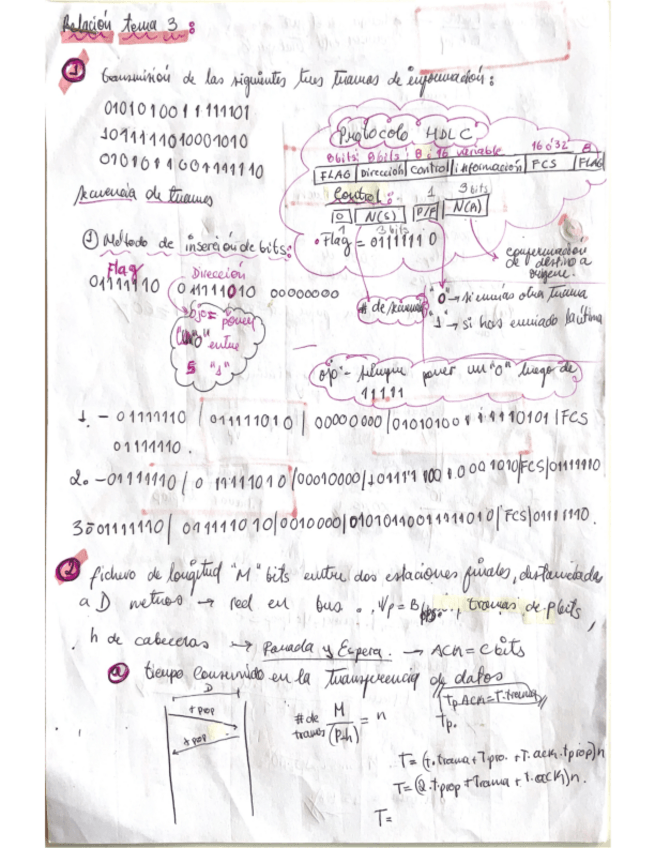 Relación tema 3:
① transmisión de las siguientes tres tramas de información:
0101010011111101
1011111010001010
0101011001111110
secuencia de tramas
Protocolo HDLC
8bits 8bits 8 ó 16 variable 16 ó 32 8
FLAG | Dirección | Control | información | FCS | FLAG
Control: 1 3bits
0 | N(S) | P/F | N(R)
1 3bits
• Flag = 01111110
confirmación de destino a origen.
① Método de inserción de bits:
Flag Dirección
01111110 011111010 00000000
ojo = poner
un "0" entre
5 "1"
# de secuencia
"0" → si envías otra trama
"1" → si has enviado la última
ojo - siempre poner un "0" luego de
11111
1. - 01111110 | 011111010 | 00000000 | 01010100111110101 | FCS
01111110.
2. - 01111110 / 011111010 /00010000/ FCS/01111110
3. 01111110 | 011111010 |0010000| FCS |01111110.
② fichero de longitud "M" bits entre dos estaciones finales, distanciadas
a D metros → red en bus tramas de p bits,
h de cabeceras → Parada y Espera. → ACK = c bits
ⓐ tiempo consumido en la transferencia de datos
D
t prop
t prop
# de tramas M/(P-h) = n
Tp.ACK = T.trama
Tp.
T = (t.trama + Tpro. + T.ack. tprop) n
T = (2.tprop + Trama + t.ack) n.
T =